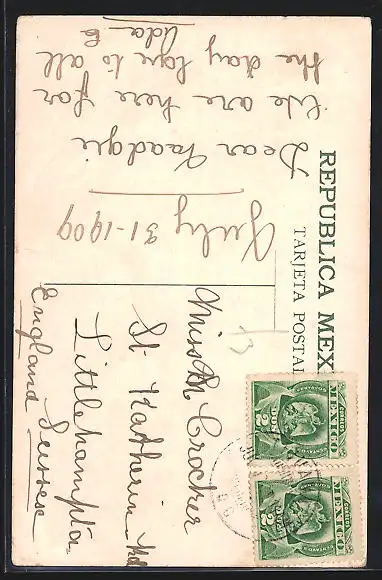 REPUBLICA MEX
TARJETA POSTAL
July 31-1909
Dear
We are here for
the day love to all
Ada
13
Miss M Crocker
St Katharin Rd
Littlehampton
England Sussex
CORREOS
MEXICO
2
DOS
CENTAVOS
CORREOS
MEXICO
2
DOS
CENTAVOS